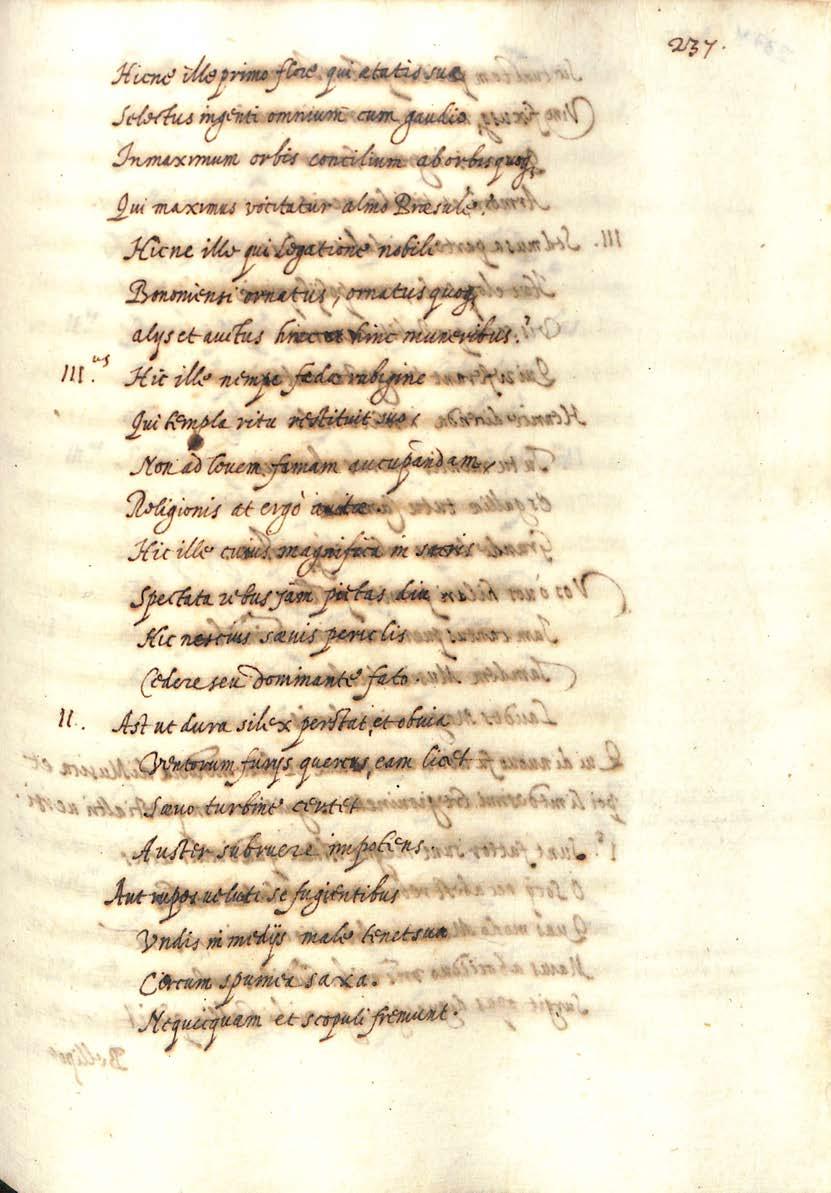 237.
Hicne ille primo flore qui ætatis suæ
Selectus ingenti omnium cum gaudio
In maximum orbis concilium ab orbis quoq;
Qui maximus vocitatur almo Præsule?
Hicne ille qui legatione nobili
Bononiensi ornatus, ornatus quoq;
alijs et auctus hinc et hinc muneribus?
III.us Hic ille nempe fæda rubigine
Qui templa ritu restituit suo,
Non ad levem famam aucupandam
Religionis at ergò avitæ.
Hic ille cuius magnifica in sacris
Spectata rebus jam pietas diu
Hic nescius sævis periclis
Cedere seu dominante fato.
II. Ast ut dura silex perstat, et obvia
Ventorum furijs quercus, eam licet
Sævo turbine certet
Auster subruere impotens.
Aut rupes veluti se fugientibus
Vndis in medijs male tenet sua
Circum spumea saxa.
Nequicquam et scopuli fremunt.